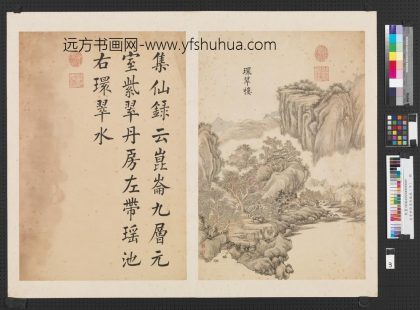 远方书画网-www.yfshuhua.com
環翠樓
集仙錄云崑崙九層元
室紫翠丹房左帶瑶池
右環翠水